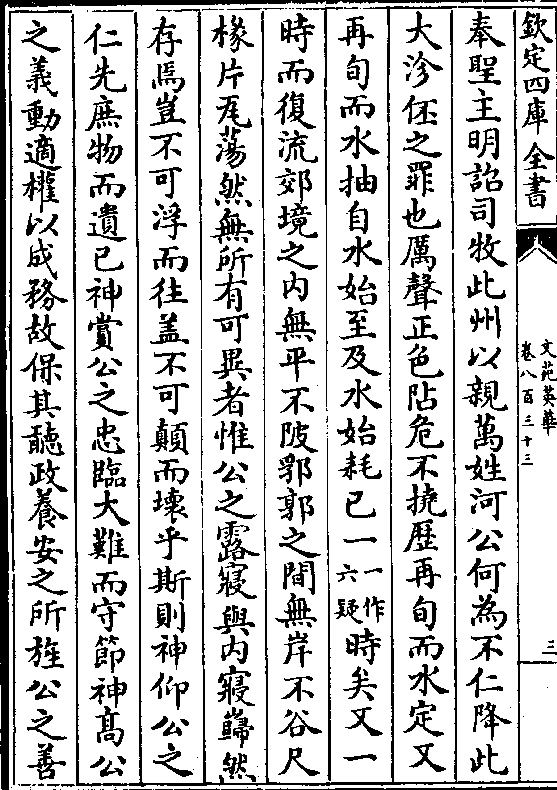 欽定四庫全書
文苑英華
卷八百三十三
三
奉聖主明詔司牧此州以親萬姓河公何為不仁降此
大沴伾之罪也厲聲正色阽危不撓歷再旬而水定又
再旬而水抽自水始至及水始耗已一一作六疑時矣又一
時而復流郊境之內無平不陂郛郭之間無岸不谷尺
椽片瓦蕩然無所有可異者惟公之露寢與內寢巋然
存焉豈不可浮而往盖不可顛而壊乎斯則神仰公之
仁先庶物而遺已神賞公之忠臨大難而守節神髙公
之義動適權以成務故保其聽政養安之所旌公之善